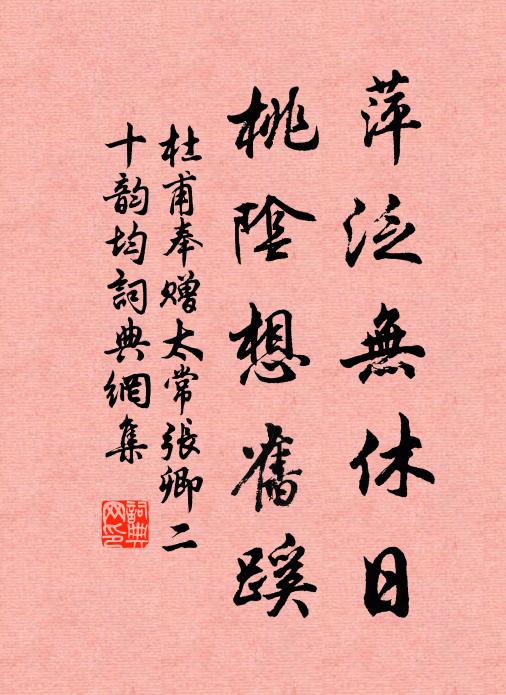 萍泛無休日
桃陰想舊蹊
杜甫奉贈太常張卿二
十韵均詞典網集
詞典
网印